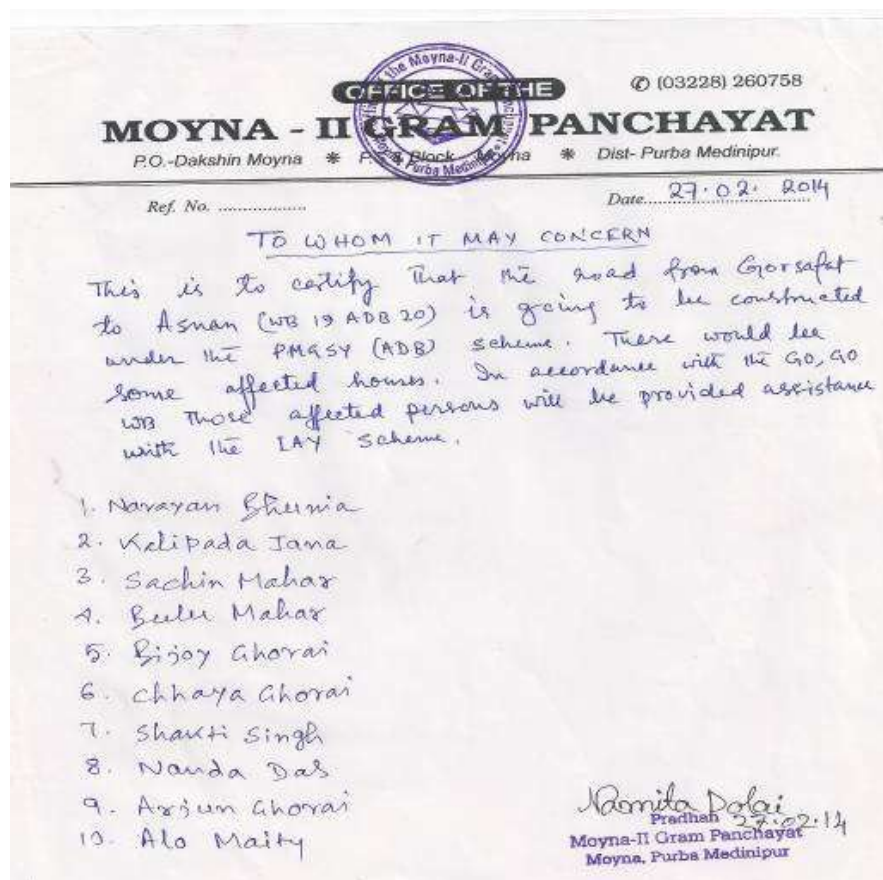 OFFICE OF THE
✆ (03228) 260758
MOYNA - II GRAM PANCHAYAT
P.O.-Dakshin Moyna * P.S. & Block - Moyna * Dist- Purba Medinipur.
Ref. No. ..................
Date 27.02.2014
TO WHOM IT MAY CONCERN
This is to certify that the road from Gorsafat
to Asnan (WB 19 ADB 20) is going to be constructed
under the PMGSY (ADB) scheme. There would be
some affected houses. In accordance with the GO, GO
WB those affected persons will be provided assistance
with the IAY Scheme.
1. Narayan Bhunia
2. Kalipada Jana
3. Sachin Mahar
4. Bulu Mahar
5. Bijoy Ghorai
6. Chhaya Ghorai
7. Shakti Singh
8. Nanda Das
9. Arjun Ghorai
10. Alo Maity
Namita Dolai
Pradhan 27.02.14
Moyna-II Gram Panchayat
Moyna, Purba Medinipur